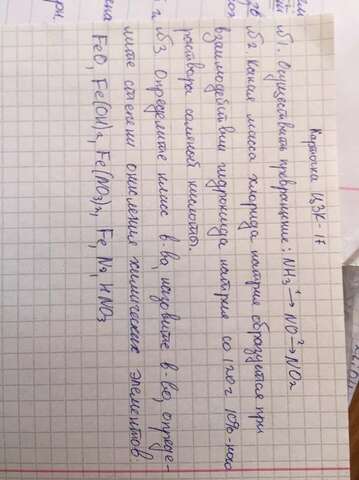 Карточка ЦЗК-17
№1. Осуществить превращение: NH₃ →¹ NO →² NO₂
№2 Какая масса хлорида натрия образуется при
взаимодействии гидроксида натрия со 120г 10%-ного
раствора соляной кислоты.
№3 Определите класс в-во, назовите в-во, опреде-
лите степени окисления химических элементов:
FeO, Fe(OH)₂, Fe(NO₃)₂, Fe, N₂, HNO₃